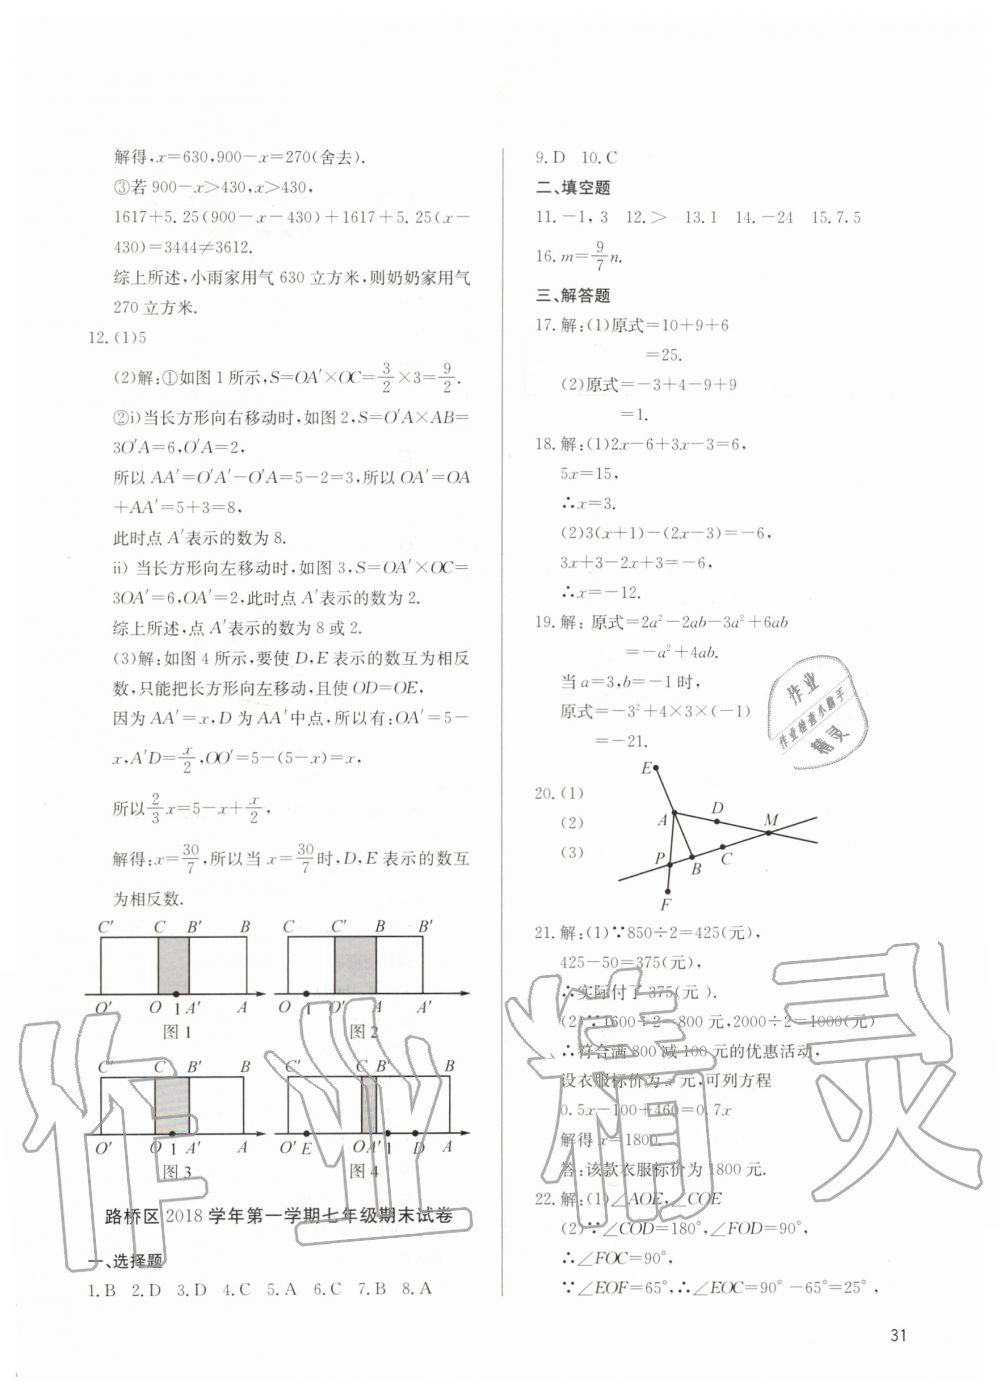 解得,x=630,900-x=270(舍去).
③若 900-x>430,x>430,
1617+5.25(900-x-430)+1617+5.25(x-
430)=3444≠3612.
综上所述,小雨家用气 630 立方米,则奶奶家用气
270 立方米.
12.(1)5
(2)解:①如图 1 所示,S=OA′×OC=3/2×3=9/2.
②i)当长方形向右移动时,如图 2,S=O′A×AB=
3O′A=6,O′A=2,
所以 AA′=O′A′-O′A=5-2=3,所以 OA′=OA
+AA′=5+3=8,
此时点 A′表示的数为 8.
ii) 当长方形向左移动时,如图 3,S=OA′×OC=
3OA′=6,OA′=2,此时点 A′表示的数为 2.
综上所述,点 A′表示的数为 8 或 2.
(3)解:如图 4 所示,要使 D,E 表示的数互为相反
数,只能把长方形向左移动,且使 OD=OE,
因为 AA′=x,D 为 AA′中点,所以有:OA′=5-
x,A′D=x/2,OO′=5-(5-x)=x,
所以2/3x=5-x+x/2,
解得:x=30/7,所以当 x=30/7时,D,E 表示的数互
为相反数.
C′ C B′ B
O′ O 1 A′ A
图 1
C′ C B B′
O′ A A′
图 2
C′ C B′ B
O′ O 1 A′ A
图 3
C′ C B′ B
O′ E O A′ 1 D A
图 4
路桥区 2018 学年第一学期七年级期末试卷
一、选择题
1.B 2.D 3.D 4.C 5.A 6.C 7.B 8.A
9.D 10.C
二、填空题
11.-1,3 12.> 13.1 14.-24 15.7.5
16.m=9/7n.
三、解答题
17.解:(1)原式=10+9+6
=25.
(2)原式=-3+4-9+9
=1.
18.解:(1)2x-6+3x-3=6,
5x=15,
∴x=3.
(2)3(x+1)-(2x-3)=-6,
3x+3-2x+3=-6,
∴x=-12.
19.解: 原式=2a²-2ab-3a²+6ab
=-a²+4ab.
当 a=3,b=-1 时,
原式=-3²+4×3×(-1)
=-21.
20.(1)
(2)
(3)
E
A D M
P B C
F
21.解:(1)∵850÷2=425(元),
425-50=375(元),
∴实际付了 375(元).
(2)∵1600÷2=800 元,2000÷2=1000(元)
∴符合满 800 减 100 元的优惠活动,
设衣服标价为 x 元,可列方程
0.5x-100+460=0.7x
解得 x=1800.
答:该款衣服标价为 1800 元.
22.解:(1)∠AOE,∠COE
(2)∵∠COD=180°,∠FOD=90°,
∴∠FOC=90°,
∵∠EOF=65°,∴∠EOC=90°-65°=25°,
31
作业
作业检查小助手
精灵
作业精灵